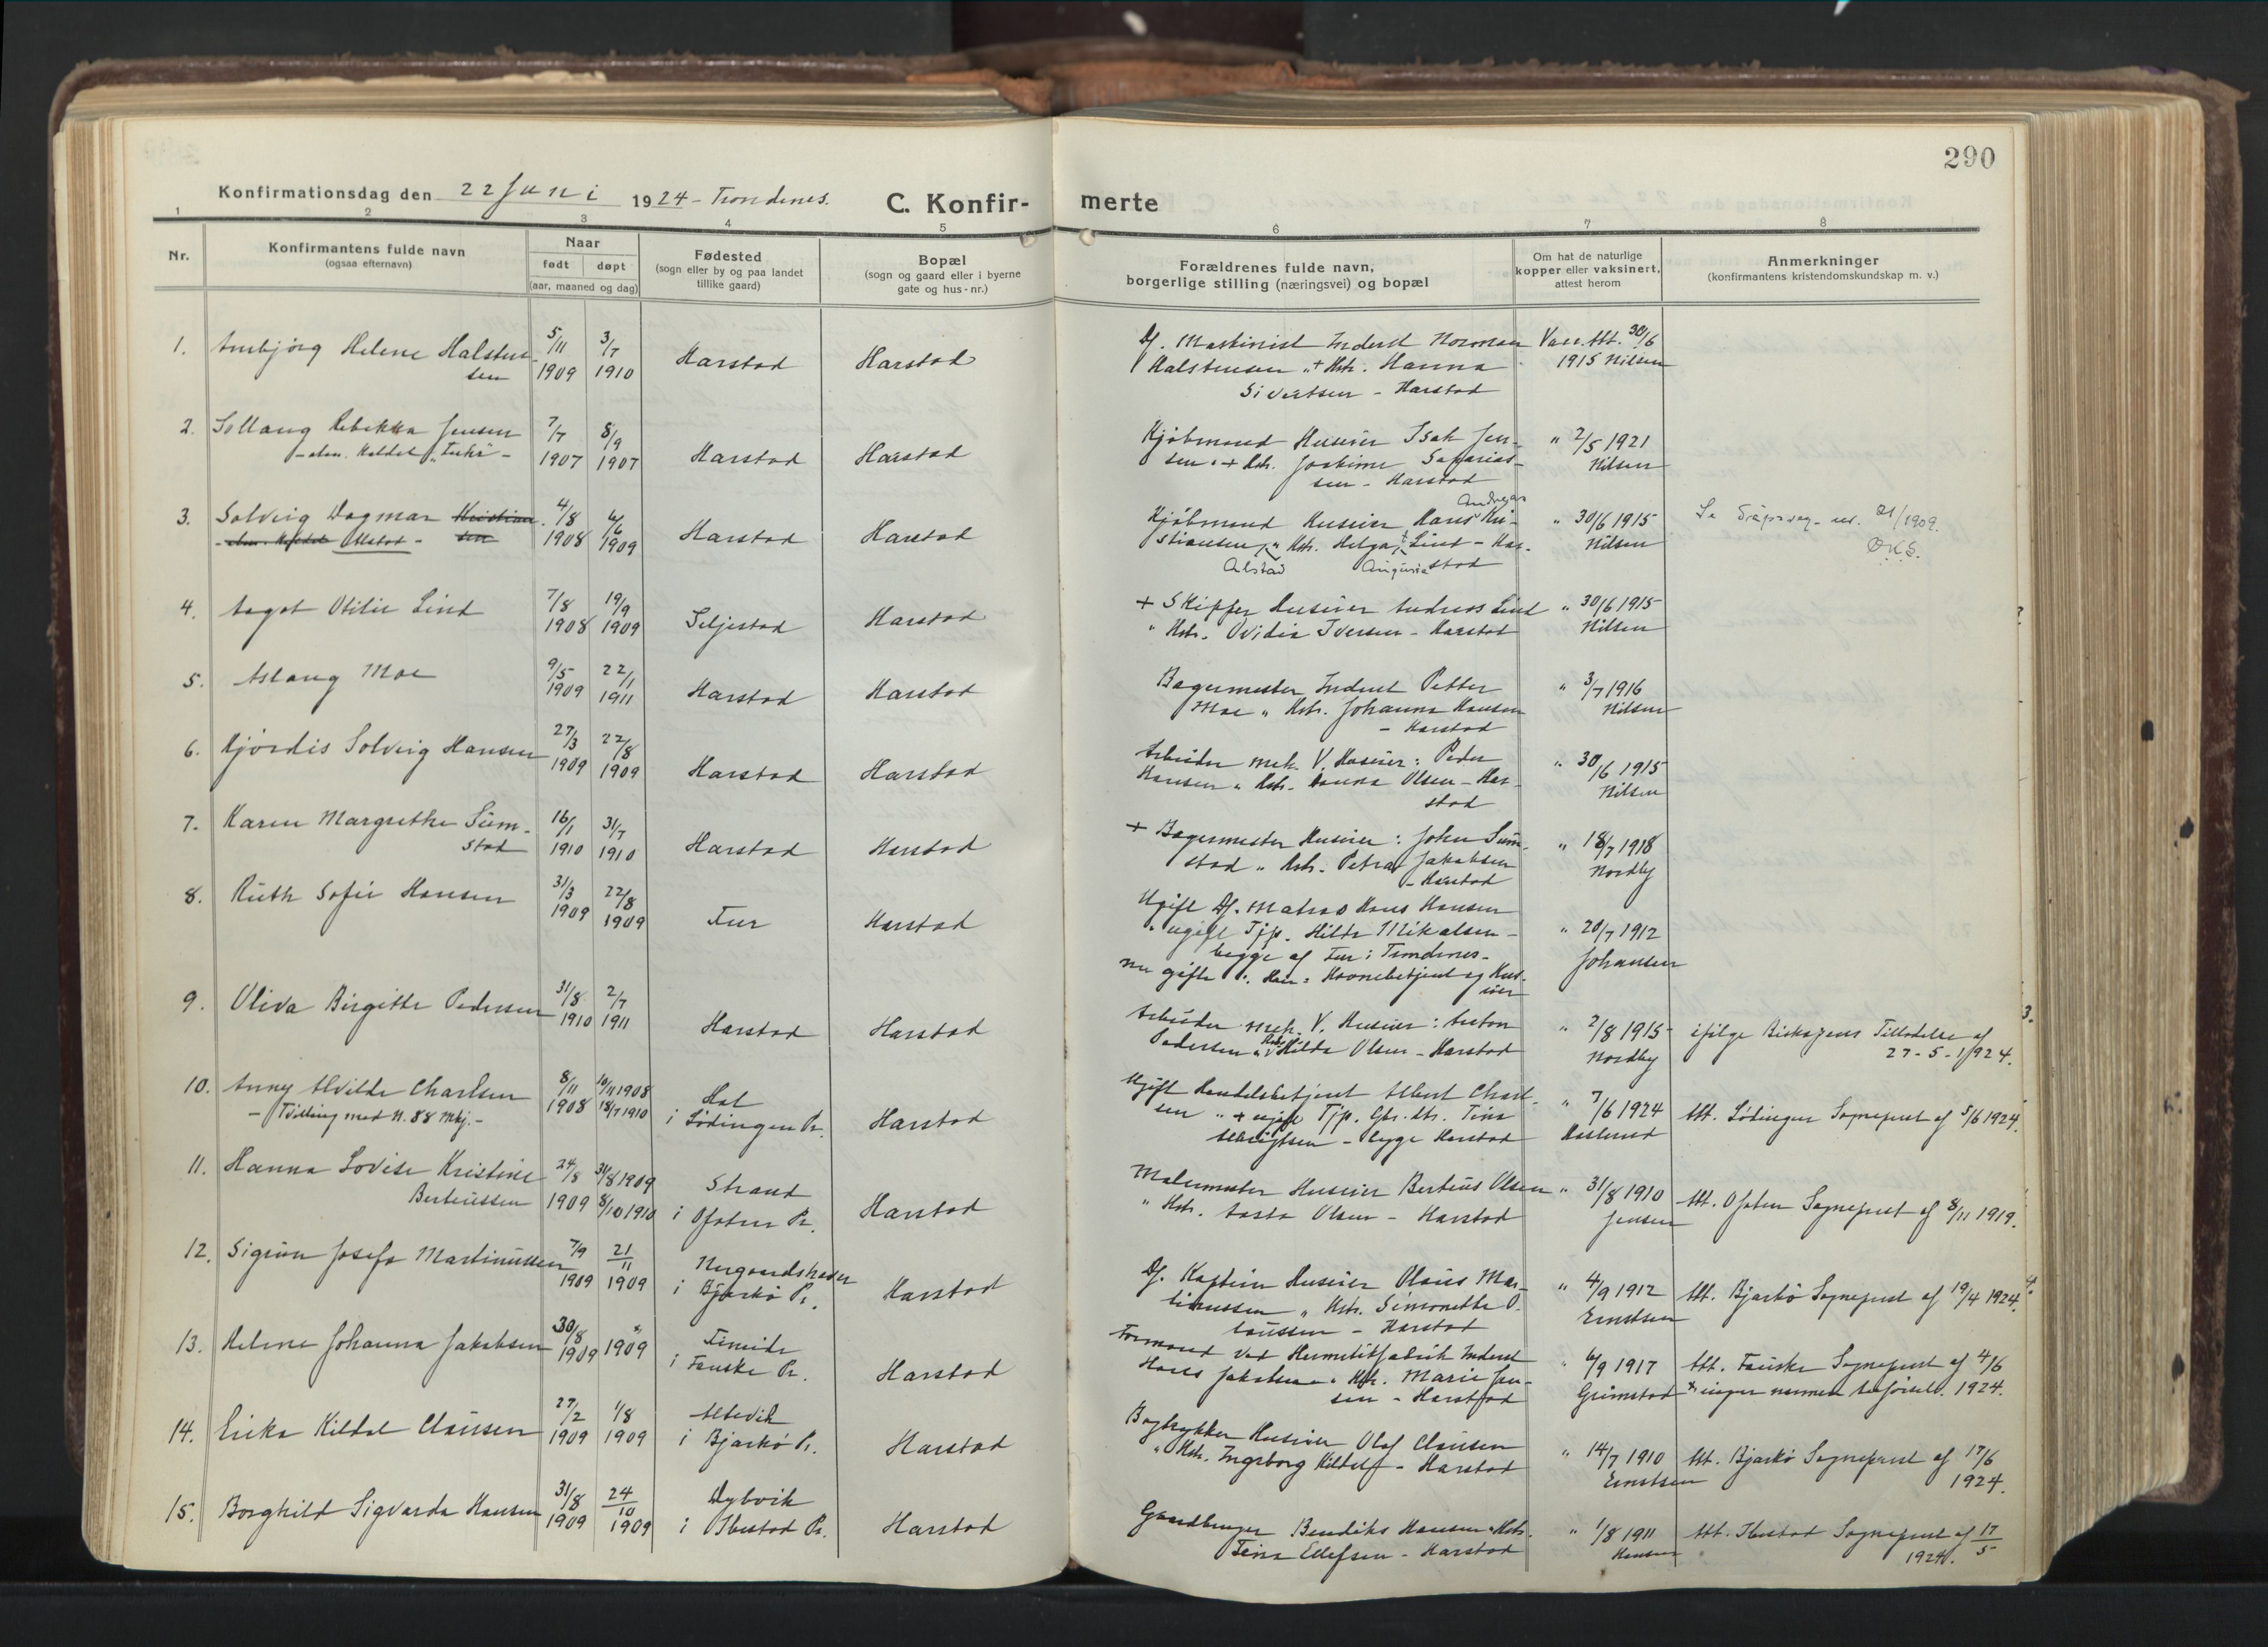 290
Konfirmationsdag den 22 Juni 1924 - Trondenes.
C. Konfir- merte
1 2 3 4 5 6 7 8
Nr.
Konfirmantens fulde navn
(ogsaa efternavn)
Naar
født døpt
(aar, maaned og dag)
Fødested
(sogn eller by og paa landet
tillike gaard)
Bopæl
(sogn og gaard eller i byerne
gate og hus-nr.)
Forældrenes fulde navn,
borgerlige stilling (næringsvei) og bopæl
Om hat de naturlige
kopper eller vaksinert,
attest herom
Anmerkninger
(konfirmantens kristendomskundskap m. v.)
1. Annbjørg Helene Halsten- 5/11 3/7 Harstad Harstad Maskinist Inderst Norman Vacc. Att. 30/6
sen 1909 1910 Halstensen Hstr. Hanna 1915 Nilsen
Sivertsen - Harstad
2. Sollaug Rebekka Jensen 7/7 8/9 Harstad Harstad Kjøbmand Huseier Isak Jen- " 2/5 1921
1907 1907 sen + Hstr. Joakime Sakarias- Nilsen
sen - Harstad
3. Solveig Dagmar Kristian- 4/8 6/6 Harstad Harstad Kjøbmand Huseier Hans Andreas Kri- " 30/6 1915 Se Dåpsreg. nr. 21/1909.
Alstad sen 1908 1909 stiansen, " Hstr. Helga Lind - Har- Nilsen Ø.K.S.
Alstad Augusta stad
4. Aagot Otilie Lind 7/8 19/9 Seljestad Harstad + Skipper Huseier Andreas Lind " 30/6 1915
1908 1909 " Hstr. Ovidia Iversen - Harstad Nilsen
5. Aslaug Moe 9/5 22/1 Harstad Harstad Bagermester Inderst Petter " 3/7 1916
1909 1911 Moe " Hstr. Johanna Hansen Nilsen
- Harstad
6. Hjørdis Solveig Hansen 27/3 22/8 Harstad Harstad Arbeider mek. V. Huseier: Peder " 30/6 1915
1909 1909 Hansen " Hstr. Olsen - Har- Nilsen
stad
7. Karen Margrethe Sum- 16/1 31/7 Harstad Harstad + Bagermester Huseier: John Sum- " 18/7 1918
stad 1910 1910 stad " Hstr. Petra Jakobsen Nordby
- Harstad
8. Ruth Sofie Hansen 31/3 22/8 Harstad Ugift Matros Hans Hansen " 20/7 1912
1909 1909 " ugift Tjp. Hilda Mikalsen - Johansen
begge af i Trondenes -
nu gifte Havnebetjent og Hus-
eier
9. Oliva Birgitte Pedersen 31/8 2/7 Harstad Harstad Arbeider mek. V. Huseier: Anton " 2/8 1915 ifølge Biskopens Tilladelse af
1910 1911 Pedersen " Hstr. Hilda Olsen - Harstad Nordby 27-5-1924.
10. Anny Alvilde Charlsen 8/11 10/11 1908 Hol Harstad Ugift Handelsbetjent Albert Charl- " 7/6 1924 Att. Lødingen Sogneprest af 5/6 1924.
- Tvilling med N. 88 Mkj. - 1908 18/7 1910 i Lødingen Pr. sen " + ugift Tjp. Gbr. dtr. Tina
- begge Harstad
11. Hanna Lovise Kristine 24/8 31/8 1909 Strand Harstad Malermester Huseier Berteus Olsen " 31/8 1910 Att. Ofoten Sogneprest af 8/11 1919.
Berteussen 1909 8/10 1910 i Ofoten Pr. " Hstr. Aasta Olsen - Harstad Jensen
12. Sigrun Josefa Martinussen 7/9 21/11 i Bjarkø Pr. Harstad Kaptein Huseier Olaus Mar- " 4/9 1912 Att. Bjarkø Sogneprest af 19/4 1924.
1909 1909 tinussen " Hstr. Simonette Ernstsen
- Harstad
13. Helene Johanna Jakobsen 30/8 * i Fauske Pr. Harstad Formand ved Hermetikfabrik Inderst " 6/9 1917 Att. Fauske Sogneprest af 4/6
1909 1909 Hans Jakobsen " Hstr. Marie Jen- Grimstad * ingen nærmere Anførsel. 1924.
sen - Harstad
14. Erika Kildal Clausen 27/2 1/8 Altevik Harstad Bogtrykker Huseier Olaf Clausen " 14/7 1910 Att. Bjarkø Sogneprest af 17/6
1909 1909 i Bjarkø Pr. " Hstr. Ingeborg Kildal - Harstad Ernstsen 1924.
15. Borghild Sigvarda Hansen 31/8 24/10 Dybvik Harstad Gaardbruger Bendiks Hansen " Hstr. " 1/8 1911 Att. Ibestad Sogneprest af 17/5
1909 1909 i Ibestad Pr. Ellefsen - Harstad Hansen 1924.